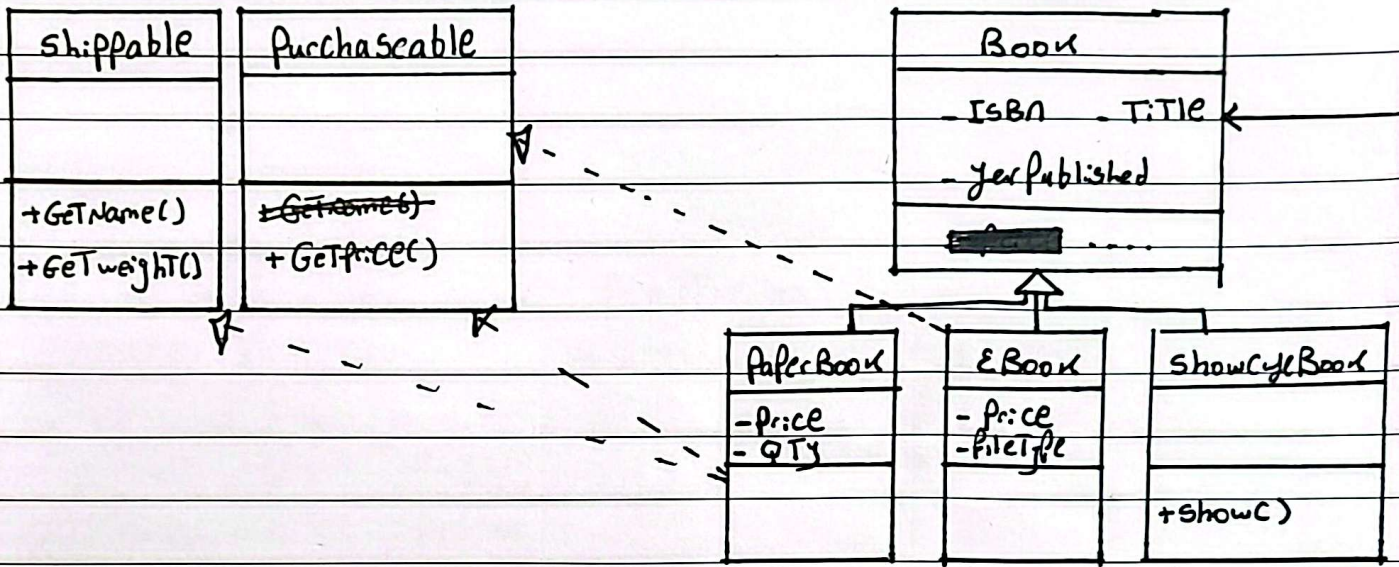 Shippable
+GetName()
+GetweighT()
Purchaseable
+GetPrice()
Book
- ISBN - TiTle
- yerPublished
....
PaperBook
- Price
- QTy
EBook
- Price
- FileType
ShowCyeBook
+Show()